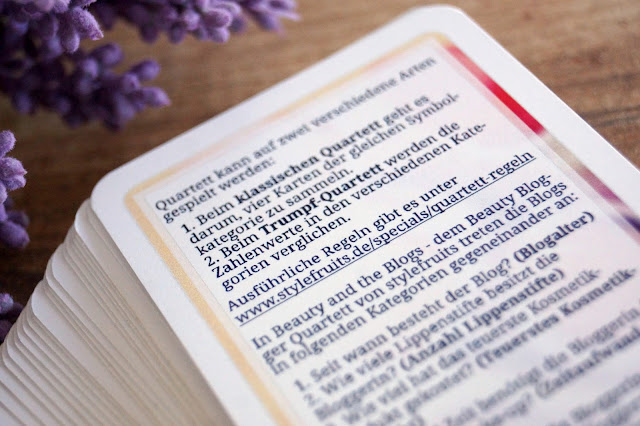 Quartett kann auf zwei verschiedene Arten
gespielt werden:
1. Beim klassischen Quartett geht es
darum, vier Karten der gleichen Symbol-
kategorie zu sammeln.
2. Beim Trumpf-Quartett werden die
Zahlenwerte in den verschiedenen Kate-
gorien verglichen.
Ausführliche Regeln gibt es unter
www.stylefruits.de/specials/quartett-regeln
In Beauty and the Blogs - dem Beauty Blog-
ger Quartett von stylefruits treten die Blogs
in folgenden Kategorien gegeneinander an:
1. Seit wann besteht der Blog? (Blogalter)
2. Wie viele Lippenstifte besitzt die
Bloggerin? (Anzahl Lippenstifte)
3. Wie viel hat das teuerste Kosmetik-
produkt gekostet? (Teuerstes Kosmetik-
Zeit benötigt die Bloggerin
(Zeitaufwand